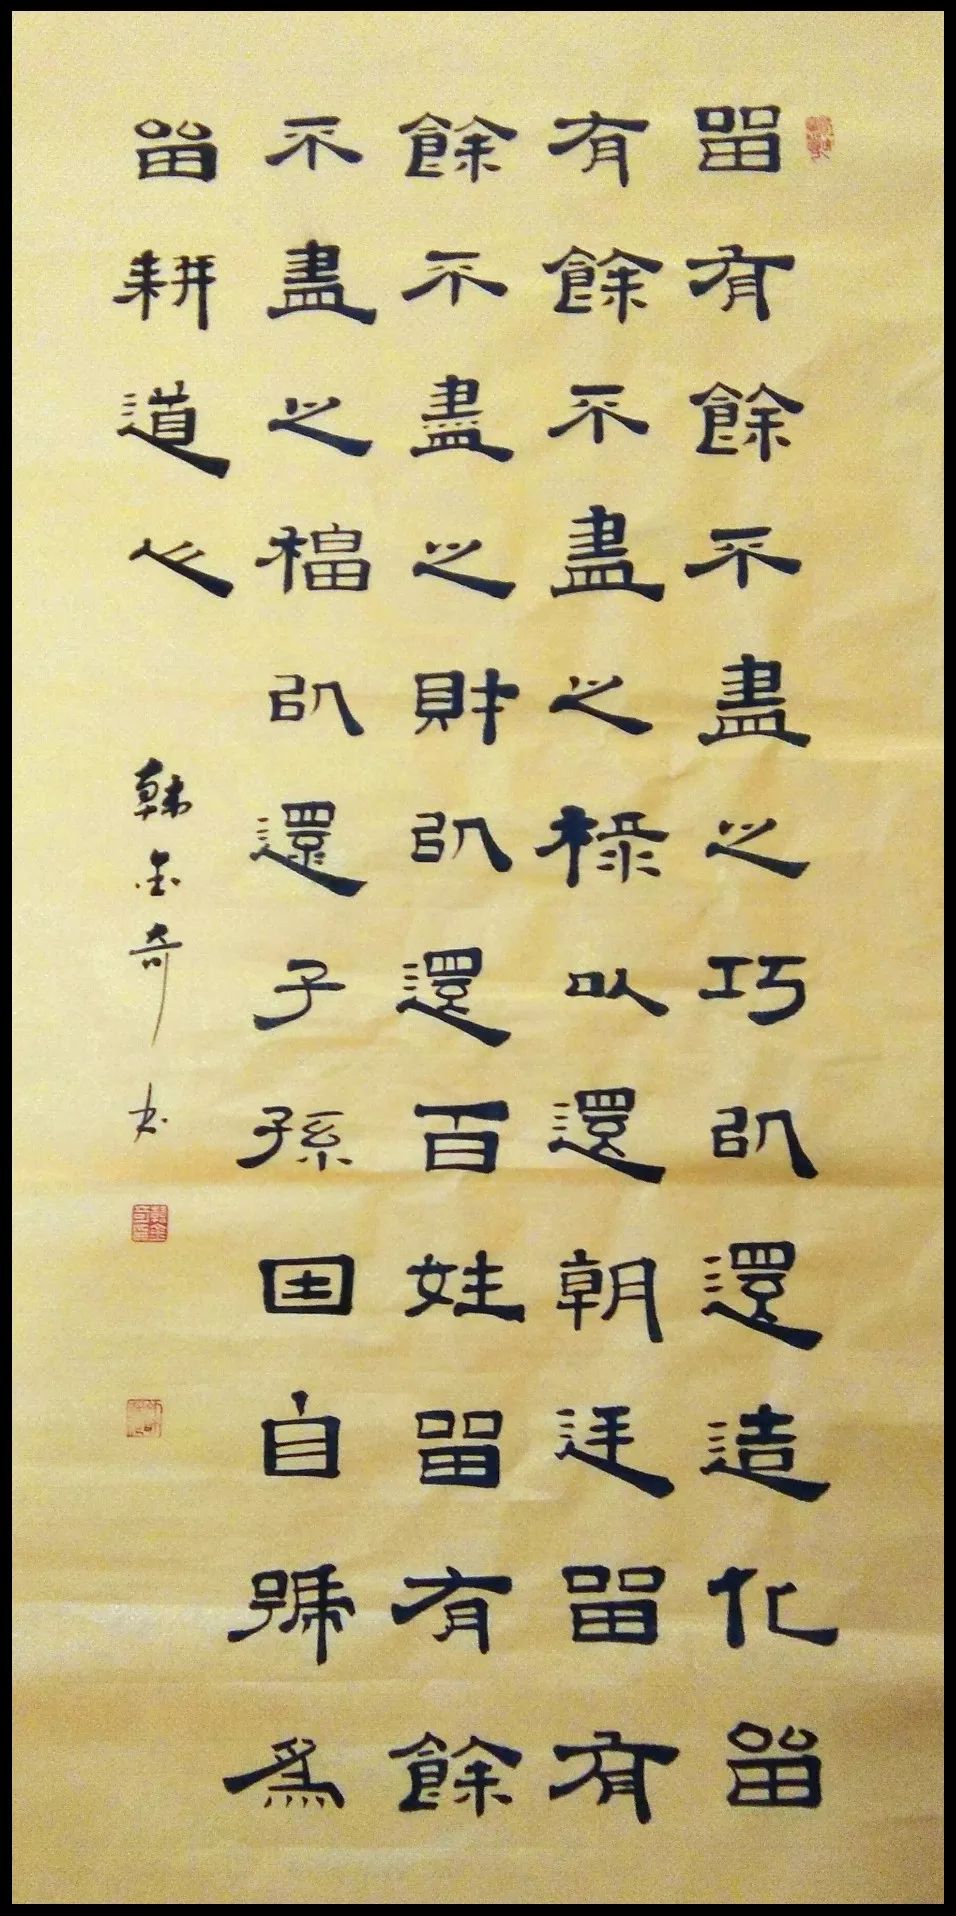 留有餘不盡之巧以還造化留
有餘不盡之祿以還朝廷留有
餘不盡之財以還百姓留有餘
不盡之福以還子孫因自號為
留耕道人
韓金奇書